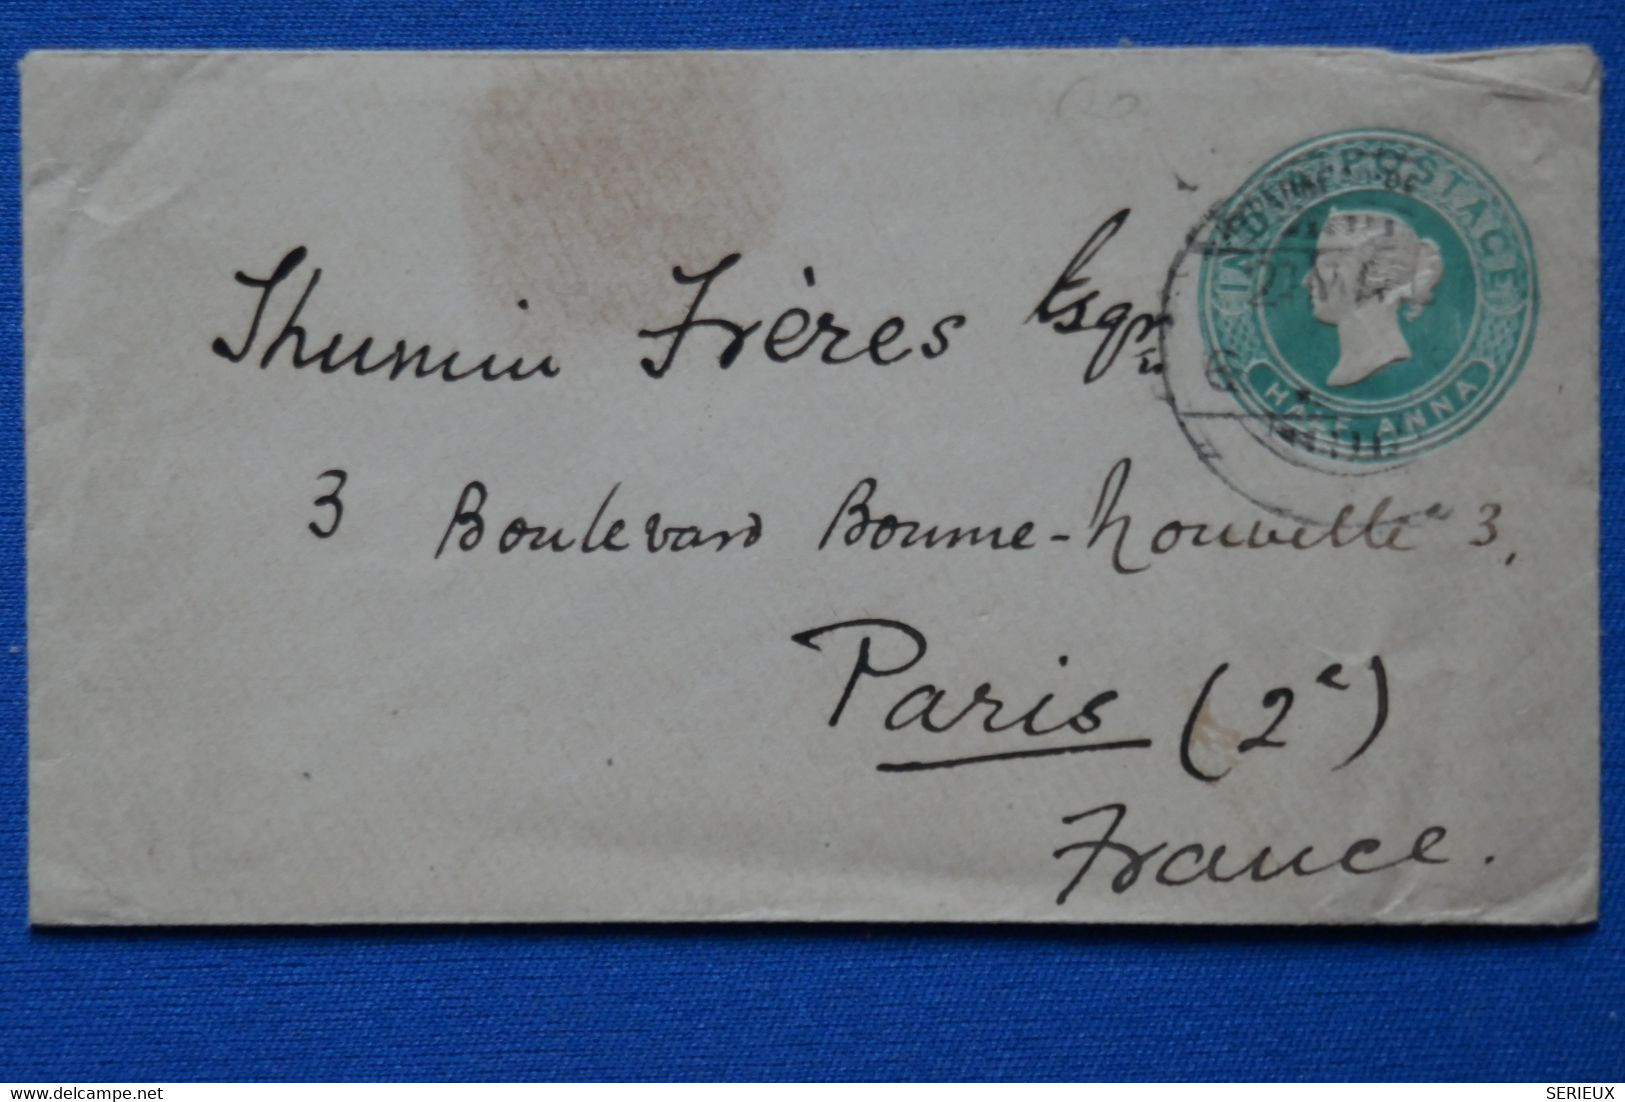 INDIA POSTAGE
HALF ANNA
Thumin Frères Esqr
3 Boulevard Bonne-Nouvelle 3,
Paris (2e)
France.
delcampe.net
SERIEUX